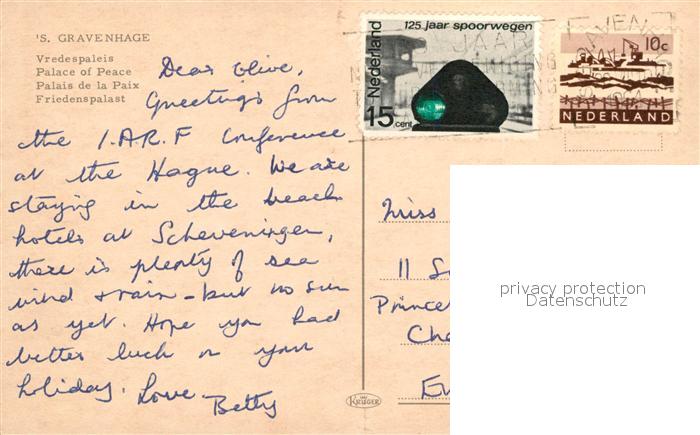 'S. GRAVENHAGE
Vredespaleis
Palace of Peace
Palais de la Paix
Friedenspalast
Dear Olive,
Greetings from
the I.A.R.F Conference
at the Hague. We are
staying in the beach
hotels at Scheveningen,
there is plenty of sea
wind & rain - but no sun
as yet. Hope you had
better luck on your
holiday. Love
Betty
KRÜGER
125 jaar spoorwegen
Nederland
15 cent
10c
NEDERLAND
JAAR
HAVEN
Miss
11
Prince
Che
privacy protection
Datenschutz